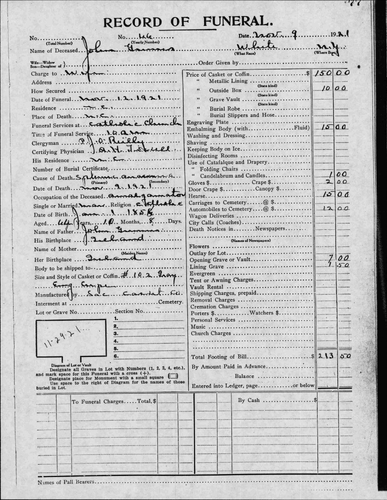 RECORD OF FUNERAL.
No. No. 46 Date, Nov. 9 1921
(Total Number) (Yearly Number)
Name of Deceased John White N.Y.
(What Race) (Where Born)
Order Given by
Charge to Wife
Address
How Secured
Date of Funeral Nov. 12. 1921
Residence N.C.
Place of Death N.C.
Funeral Services at Catholic Church
Time of Funeral Service 10 a.m.
Clergyman P. J. O'Reilly
Certifying Physician
His Residence N.C.
Number of Burial Certificate
Cause of Death
Date of Death Nov. 9. 1921
Occupation of the Deceased
Single or Married Religion Catholic
Date of Birth Jan. 1. 1855
Aged 66 Years, 10 Months, 8 Days
Name of Father John
His Birthplace Ireland
Name of Mother
Her Birthplace Ireland
Body to be shipped to
Size and Style of Casket or Coffin #102 Gray
Manufactured by Casket Co.
Interment at Cemetery.
Lot or Grave No. Section No.
1.
2.
3.
4.
5.
6.
11-29-21
Diagram of Lot or Vault
Designate all Graves in Lot with Numbers (1, 2, 3, 4, etc.)
and mark space for this Funeral with a cross (+).
Designate place for Monument with a small square
Use space to the right of Diagram for the names of those
buried in Lot.
Price of Casket or Coffin $150.00
" Metallic Lining
" Outside Box 10.00
" Grave Vault
" Burial Robe
" Burial Slippers and Hose
Engraving Plate
Embalming Body (with Fluid) 15.00
Washing and Dressing
Shaving
Keeping Body on Ice
Disinfecting Rooms
Use of Catafalque and Drapery
" Folding Chairs
" Candelabrum and Candles 1.00
Gloves $ Crape $ 2.00
Door Crape Canopy $
Hearse 15.00
Carriages to Cemetery @ $
Automobiles to Cemetery @ $ 12.00
Wagon Deliveries
City Calls (Coaches)
Death Notices in Newspapers
(Names of Newspapers)
Flowers
Outlay for Lot
Opening Grave or Vault 7.00
Lining Grave 1.50
Evergreen
Tent or Awning Charges
Vault Rental
Shipping Charges, prepaid
Removal Charges
Cremation Charges
Porters $ Watchers $
Personal Services
Music
Church Charges
Total Footing of Bill $213.50
By Amount Paid in Advance
Balance
Entered into Ledger, page or below
To Funeral Charges, Total $ By Cash $
Names of Pall Bearers